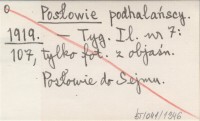 Posłowie podhalańscy.
1919. — Tyg. Il. nr 7:
107, tylko fot. z objaśn.
Posłowie do Sejmu.